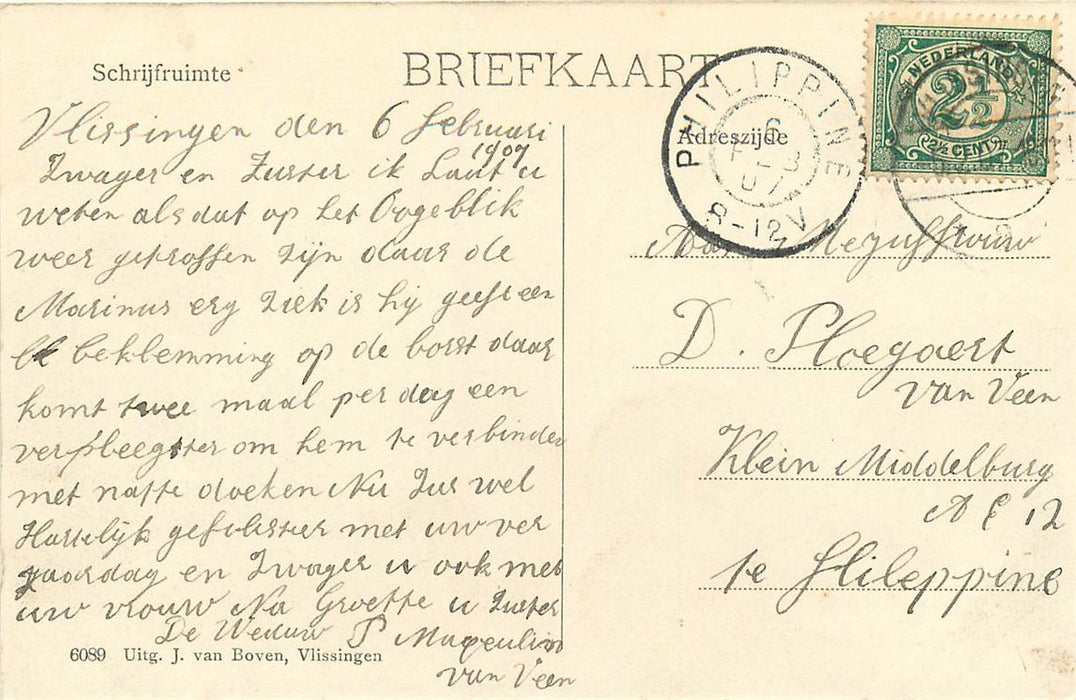 Schrijfruimte
BRIEFKAART
Adreszijde
NEDERLAND
2½
2½ CENT
PHILIPPINE
6
FEB
07
8-12V
Vlissingen den 6 Februari
1907
Zwager en Zuster ik Laat u
weten als dat op het Oogeblik
weer getroffen zijn daar de
Marinus erg ziek is hij geeft een
beklemming op de borst daar
komt twee maal per dag een
verpleegster om hem te verbinden
met natte doeken Nu Zus wel
Hartelijk gefilisteer met uw ver
jaardag en Zwager u ook met
uw vrouw Na Groette u Zuster
De Weduw P
van Veen
6089 Uitg. J. van Boven, Vlissingen
Aan Mejuffrouw
D. Ploegaert
van Veen
Klein Middelburg
A 12
te Fhileppine